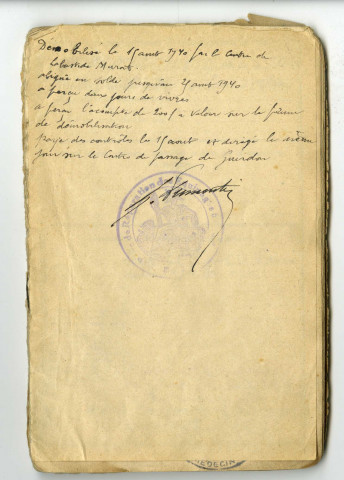 Démobilisé le 15 aout 1940 par le Centre de
Labastide Murat.
aligné en solde jusqu'au 29 aout 1940
a perçu deux jours de vivres
a perçu l'acompte de 200f à valoir sur la prime
de démobilisation
Rayé des contrôles le 15 aout et dirigé le même
jour sur le Centre de passage de Gourdon
MEDECIN